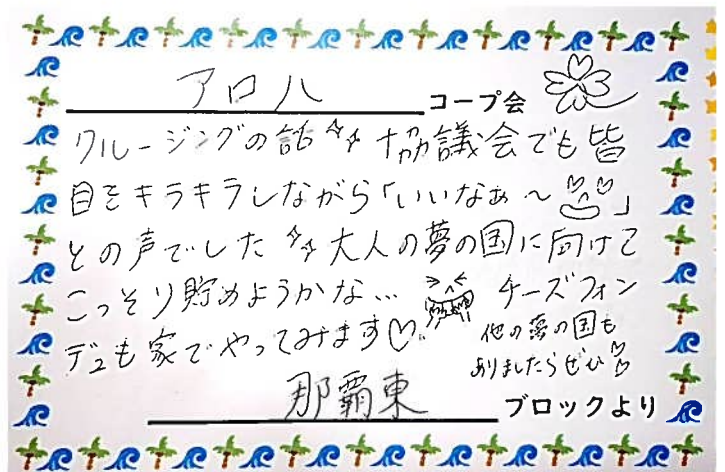 アロハ コープ会
クルージングの話 協議会でも皆
目をキラキラしながら「いいなぁ〜」
との声でした 大人の夢の国に向けて
こっそり貯めようかな… チーズフォン
デュも家でやってみます♡
他の夢の国も
ありましたらぜひ
那覇東 ブロックより